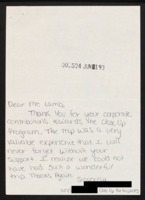 Dear Mr.
Thank you for your corporate
contributions towards the Close Up
Program. The trip was a very
valuable experience that I will
never forget. Without your
support I realize we could not
have had such a wonderful
trip. Thanks Again.
Sincerely